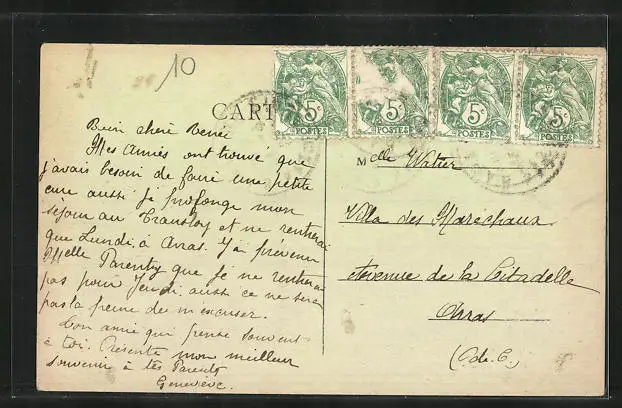 10
CART
5c 5c 5c 5c
POSTES POSTES POSTES POSTES
Bien chère Renée
Mes Amies ont trouvé que
j'avais besoin de faire une petite
cure aussi je prolonge mon
séjour au Transloy et ne rentrerai
que Lundi à Arras. J'ai prévenu
Melle Parenty que je ne rentrerai
pas pour Jeudi aussi ce ne sera
pas la peine de m'excuser.
Ton amie qui pense souvent
à toi. Présente mon meilleur
souvenir à tes Parents
Geneviève.
Melle Watier
Villa des Maréchaux
Avenue de la Citadelle
Arras
(P. de C.)